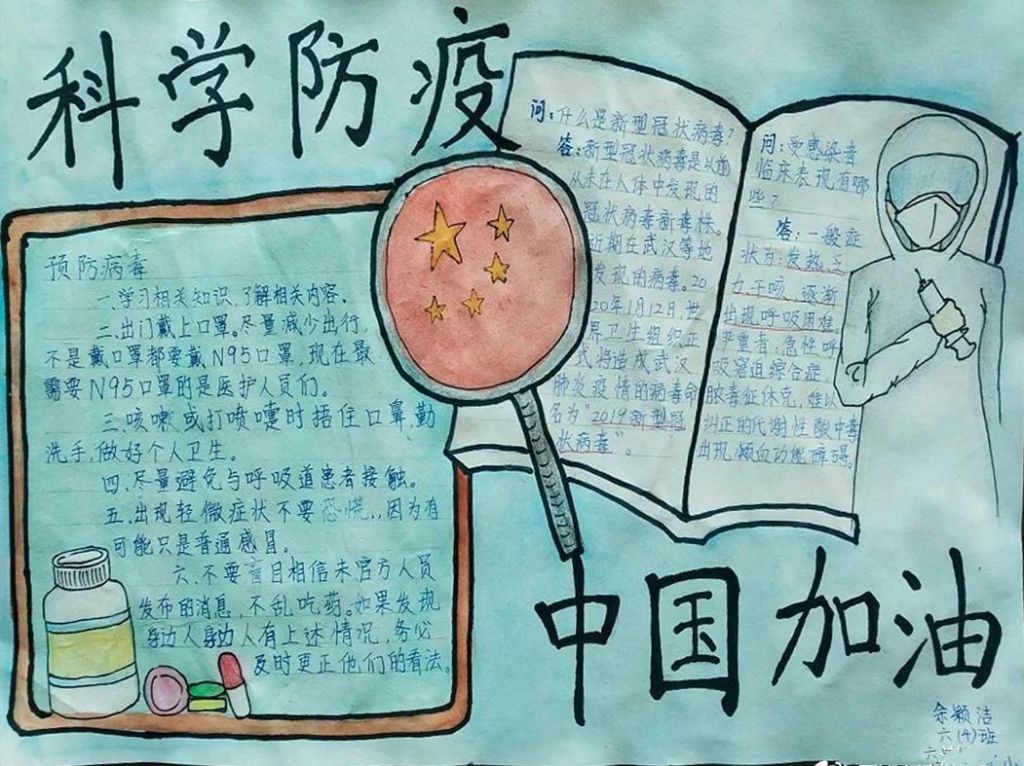 科学防疫
预防病毒
一.学习相关知识,了解相关内容.
二.出门戴上口罩。尽量减少出行,
不是戴口罩都要戴N95口罩,现在最
需要N95口罩的是医护人员们。
三.咳嗽或打喷嚏时捂住口鼻,勤
洗手,做好个人卫生。
四.尽量避免与呼吸道患者接触。
五.出现轻微症状不要恐慌.,因为有
可能只是普通感冒。
六.不要盲目相信未官方人员
发布的消息,不乱吃药。如果发现
身边人身边人有上述情况,务必
及时更正他们的看法。
问:什么是新型冠状病毒?
答:新型冠状病毒是以前
从未在人体中发现的
冠状病毒新毒株。
近期在武汉等地
发现的病毒。20
20年1月12日,世
界卫生组织正
式将造成武汉
肺炎疫情的病毒命
名为"2019新型冠
状病毒"。
问:受感染者
临床表现有哪
些?
答:一般症
状为:发热,乏
力干咳,逐渐
出现呼吸困难.
严重者:急性呼
吸窘迫综合症,
脓毒症休克,难以
纠正的代谢性酸中毒
出现凝血功能障碍。
中国加油
余颖洁
六(4)班